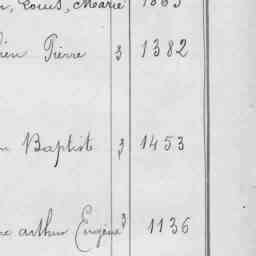 Louis, Marie
Pierre 3 1382
Baptiste 3 1453
arthur Eugène 3 1136